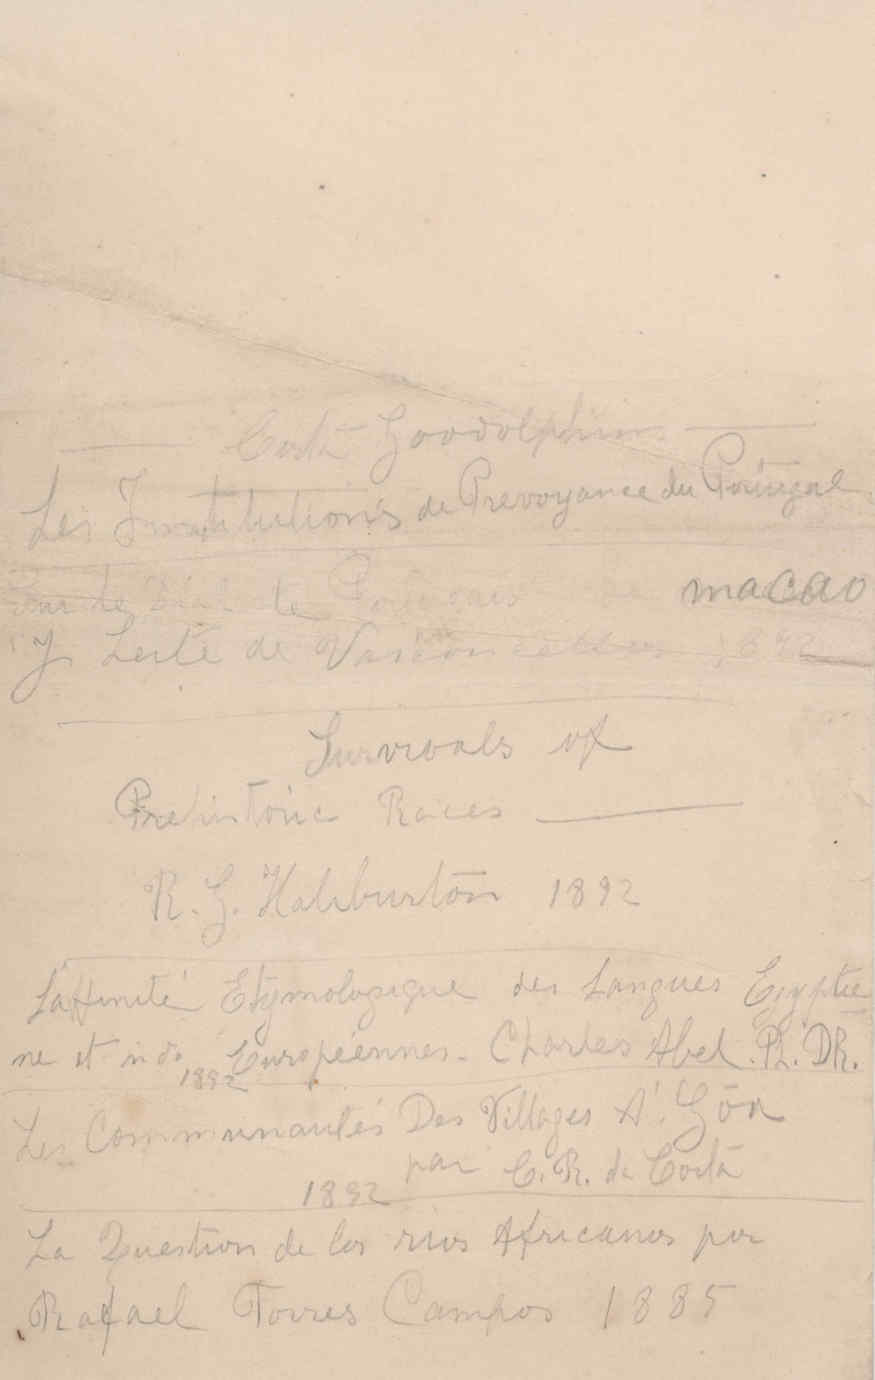 Costa Goodolphim
Les Institutions de Prevoyance du Portugal
de macao
J Leite de Vasconcellos 1892
Survivals of
Prehistoric Races
R. G. Haliburton 1892
L'affinité Etymologique des Langues Egyptie
ne et indo Européennes. Charles Abel. Ph. DR.
1892
Les Communautés Des Villages A' Gôa
par C. R. da Costa
1892
La Question de los rios Africanos por
Rafael Torres Campos 1885